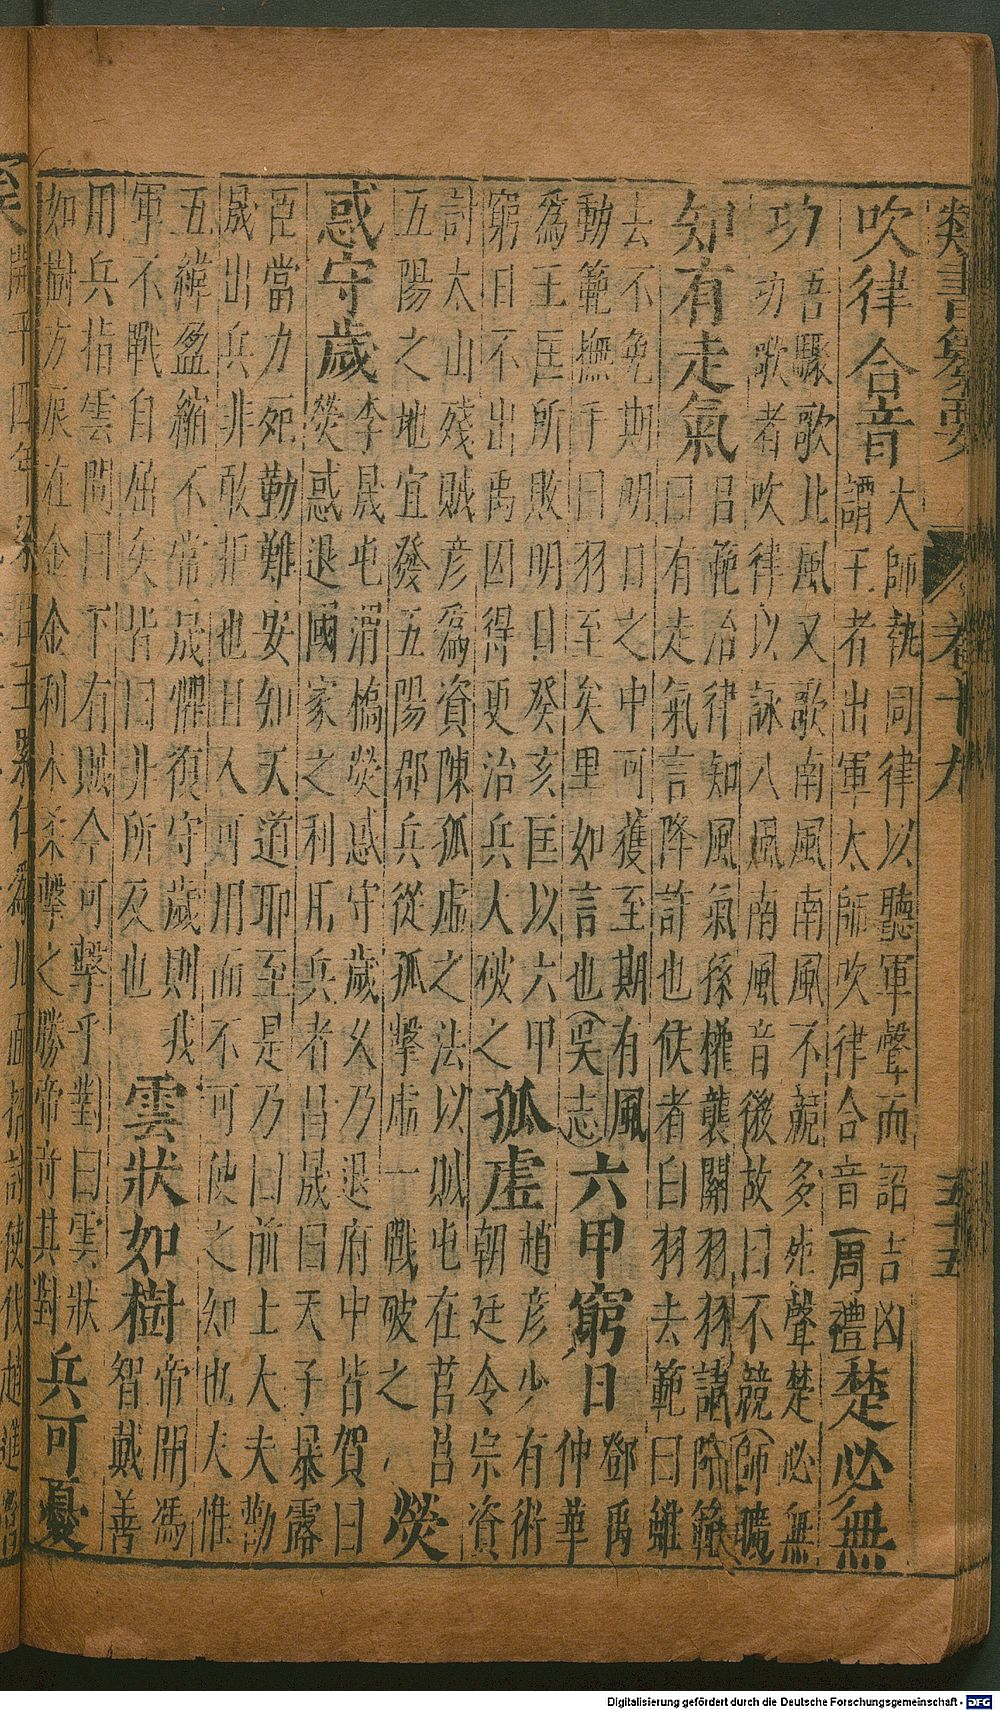 類書纂要 卷十九 五十五
吹律合音
大師執同律以聽軍聲而詔吉凶
謂王者出軍太師吹律合音
周禮
楚必無
功
吾驟歌北風又歌南風南風不競多死聲楚必無
功歌者吹律以詠八風南風音微故曰不競(師曠
知有走氣
呂範治律知風氣孫權襲關羽羽請降範
曰有走氣言降詐也候者白羽去範曰雖
去不免期明日之中可獲至期有風
動範撫手曰羽至矣里如言也(吳志)
六甲窮日
鄧禹
仲華
為王匡所敗明日癸亥匡以六甲
窮日不出禹因得更治兵人破之
孤虛
趙彥少有術
朝廷令宗資
討太山殘賊彥為資陳孤虛之法以賊屯在莒莒
五陽之地宜發五陽郡兵從孤擊虛一戰破之
熒
惑守歲
李晟屯渭橋熒惑守歲久乃退府中皆賀曰
熒惑退國家之利用兵者昌晟曰天子暴露
臣當力死勤難安知天道耶至是乃曰前士大夫勸
晟出兵非敢拒也且人可用而不可使之知也夫惟
五緯盈縮不常晟懼復守歲則我
軍不戰自屈矣皆曰非所及也
雲狀如樹
帝問馮
智戴善
用兵指雲問曰下有賊今可擊乎對曰雲狀
如樹方辰在金金利木柔擊之勝帝奇其對
兵可憂
Digitalisierung gefördert durch die Deutsche Forschungsgemeinschaft - DFG